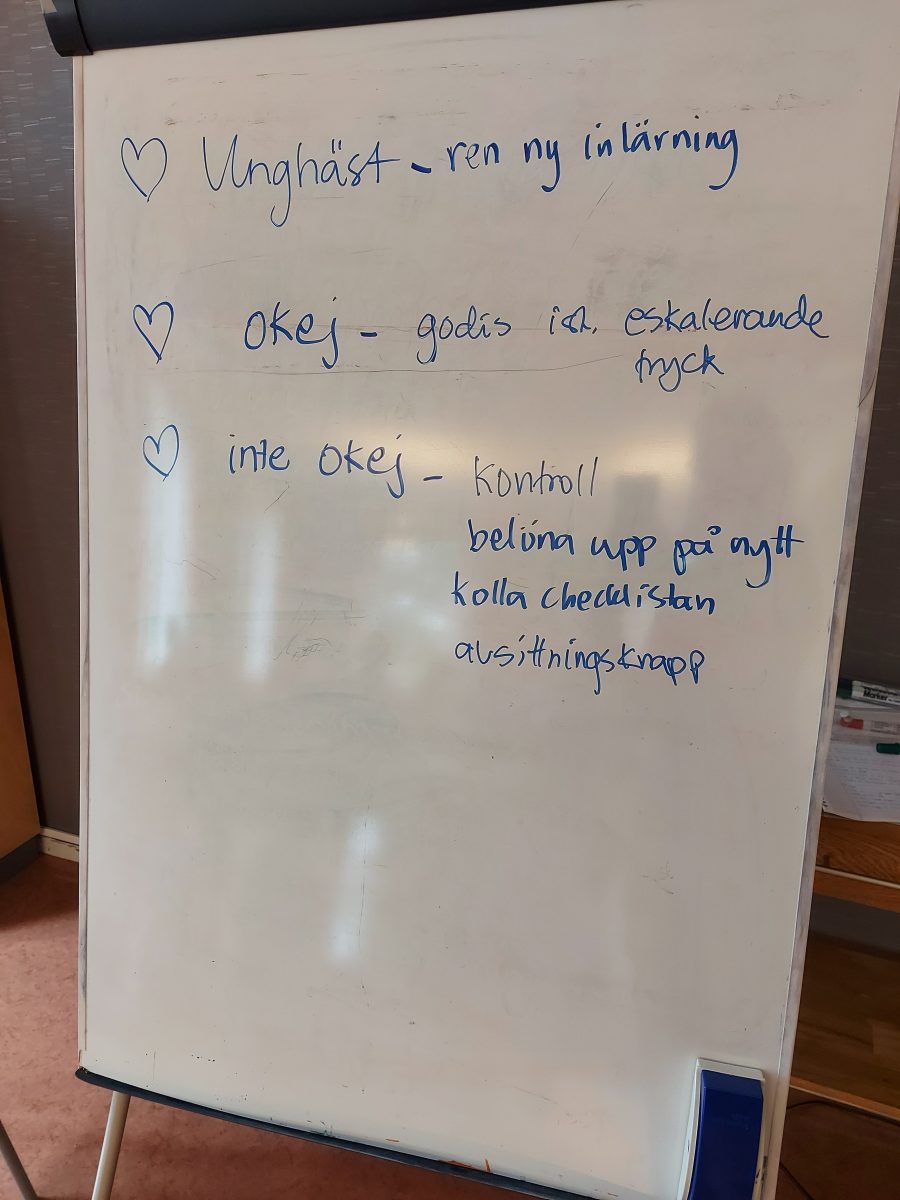 Unghäst - ren ny inlärning
Okej - godis ist. eskalerande
tryck
inte okej - kontroll
belöna upp på nytt
kolla checklistan
avsittningsknapp
Marker